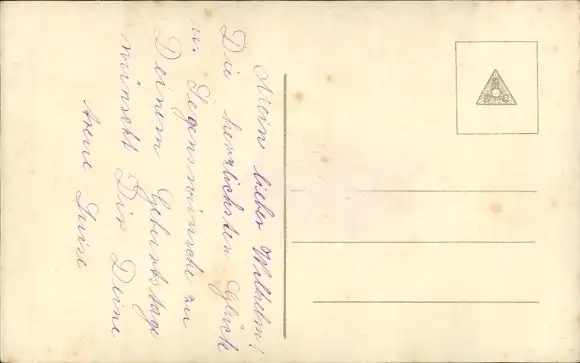 Mein lieber Wilhelm!
Die herzlichsten Glück
u. Segenswünsche zu
Deinem Geburtstage
wünscht Dir Deine
treue Luise